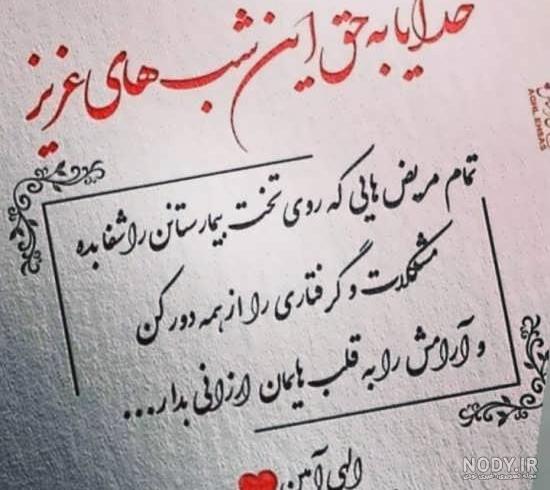 خدایا به حق این شب های عزیز
تمام مریض هایی که روی تخت بیمارستانن را شفا بده
مشکلات و گرفتاری را از همه دور کن
و آرامش را به قلب هایمان ارزانی بدار...
الهی آمین
AGHL.EHSAS
NODY.IR